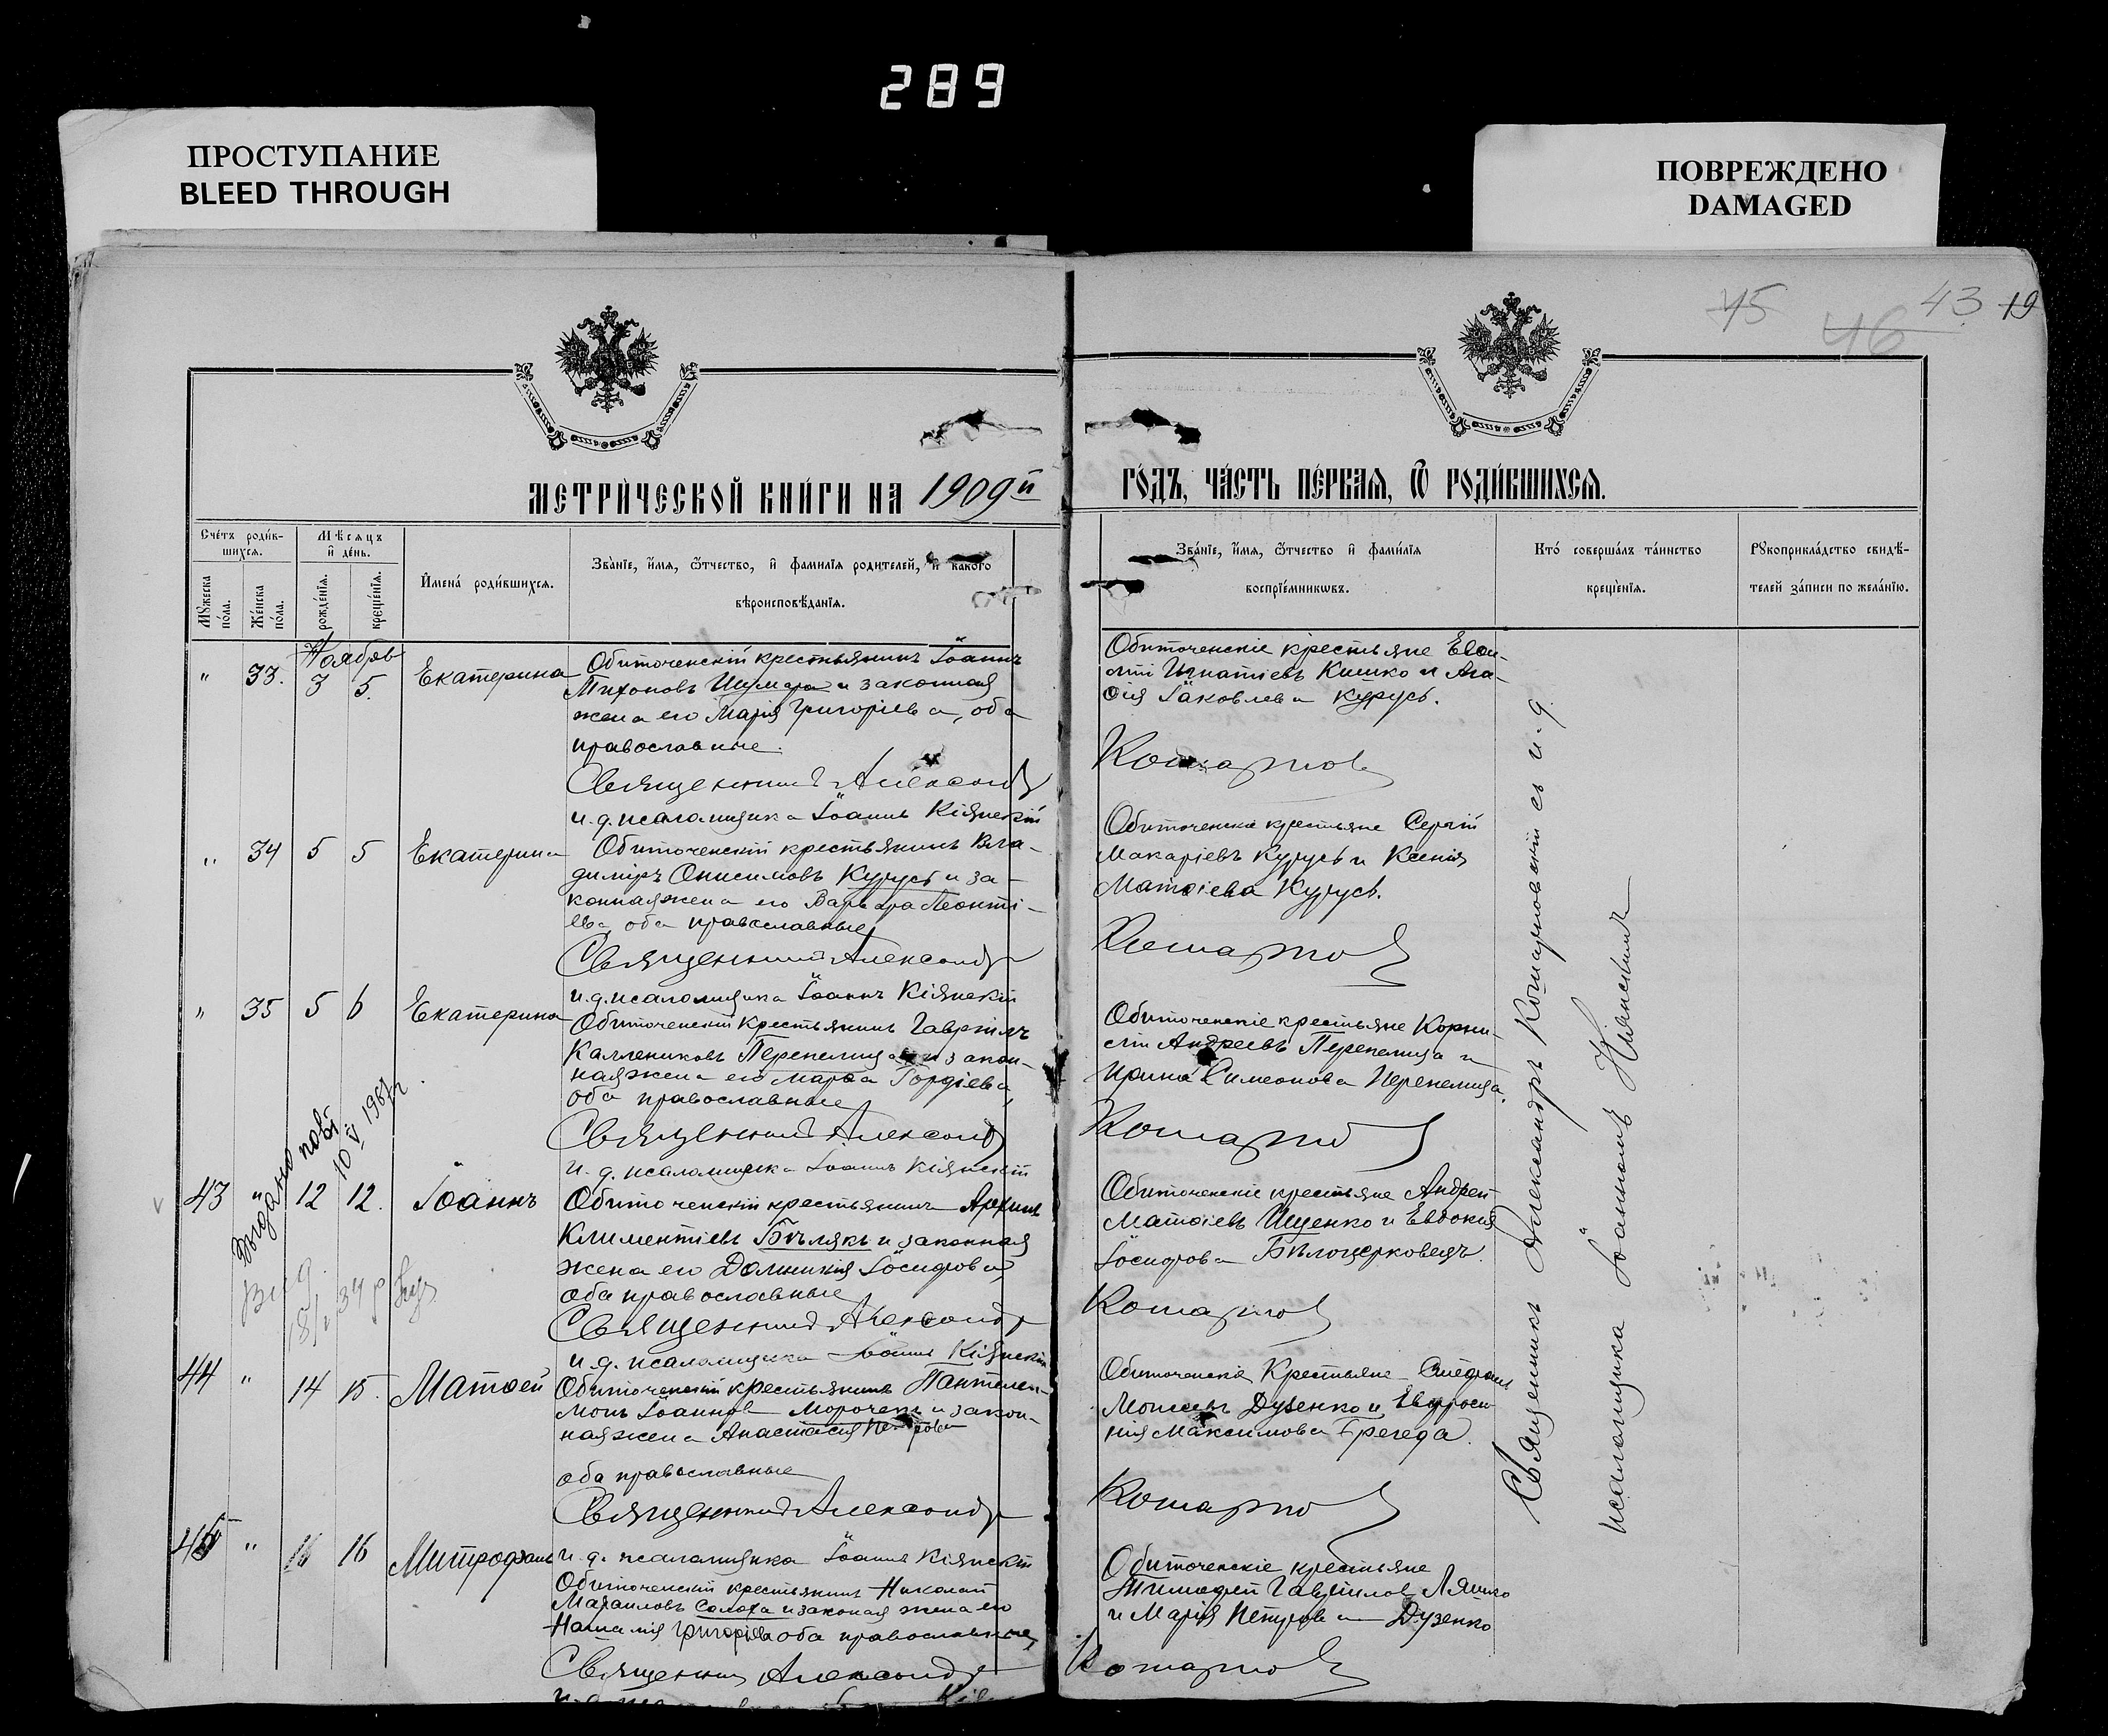 289
ПРОСТУПАНИЕ
BLEED THROUGH
ПОВРЕЖДЕНО
DAMAGED
45 46 43 19
МЕТРИ́ЧЕСКОЙ КНИ́ГИ НА 1909й ГО́ДЪ, ЧА́СТЬ ПЕ́РВАЯ, Ѿ РОДИ́ВШИХСЯ.
Сче́тъ роди́в-
шихся.
Мѣсяцъ
и де́нь.
Мꙋжеска по́ла.
Же́нска по́ла.
рожде́нїя.
креще́нїя.
Имена́ роди́вшихся.
Зва́нїе, и́мя, ѻ́тчество, и фами́лїя роди́телей, и како́го
вѣроисповѣ́данїя.
Зва́нїе, и́мя, ѻ́тчество и фами́лїя
воспрїе́мникѡвъ.
Кто́ соверша́лъ та́инство
креще́нїя.
Рꙋкоприкла́дство свидѣ́-
телей за́писи по жела́нїю.
Ноябрь
" 33. 3 5. Екатерина
Обиточенскій крестьянинъ Іоаннъ
Тихоновъ и законная
жена его Марія Григоріева, оба
православные.
Священникъ Александръ
и. д. псаломщика Іоаннъ Кіянскій
Обиточенскіе крестьяне Евѳи-
мій Игнатіевъ Кишко и Ага-
ѳія Іаковлева Курусь.
" 34 5 5 Екатерина
Обиточенскій крестьянинъ Вла-
диміръ Онисимовъ Курусь и за-
конная жена его Варвара Леонті-
ева, оба православные
Священникъ Александръ
и. д. псаломщика Іоаннъ Кіянскій
Обиточенскіе крестьяне Сергій
Макаріевъ Курусь и Ксенія
Матѳіева Курусь.
" 35 5 6 Екатерина
Обиточенскій крестьянинъ Гавріилъ
Каллениковъ Перепелица и закон-
ная жена его Марѳа Гордіева,
оба православные
Священникъ Александръ
и. д. псаломщика Іоаннъ Кіянскій
Обиточенскіе крестьяне Корни-
лій Андреевъ Перепелица и
Ирина Симеонова Перепелица.
Выдано повт
10 V 1987г
43 " 12 12. Іоаннъ
Обиточенскій крестьянинъ Архипъ
Климентіевъ Бѣлякъ и законная
жена его Домникія Іосифова,
оба православные
Священникъ Александръ
и. д. псаломщика Іоаннъ Кіянскій
Обиточенскіе крестьяне Андрей
Матѳіевъ Ищенко и Евдокія
Іосифова Бѣлоцерковецъ.
44 " 14 15. Матѳей
Обиточенскій крестьянинъ Пантелеи-
монъ Іоанновъ Морочекъ и закон-
ная жена Анастасія Петрова
оба православные
Священникъ Александръ
и. д. псаломщика Іоаннъ Кіянскій
Обиточенскіе Крестьяне Стефанъ
Дузенко и Евфроси-
нія Максимова
45 " 16 16 Митрофанъ
Обиточенскій крестьянинъ Николай
Солоха и законая жена его
Наталія Григоріева оба православные,
Священникъ Александръ
Обиточенскіе крестьяне
Тимофей Гавриловъ Ляшко
и Марія Петрова Дузенко
Священникъ Александръ съ и. д.
псаломщика Іоанномъ Кіянскимъ